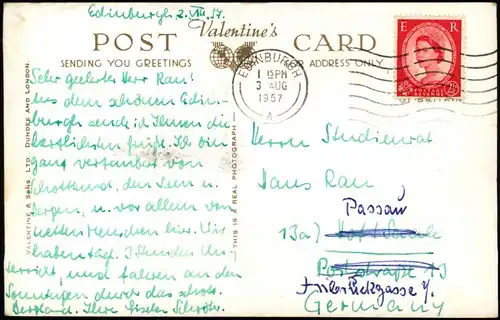 Edinburgh 2. VIII. 57.
Valentine's
POST CARD
SENDING YOU GREETINGS
FOR ADDRESS ONLY
Sehr geehrter Herr Rau!
Aus dem schönen Edin-
burgh sende ich Ihnen die
herzlichsten Grüße. Ich bin
ganz verzaubert von
Schottland, den Seen u.
Bergen, u. vor allem von
netten Menschen hier. Wir
haben tägl. 3 Stunden Un-
terricht, und fahren an den
Sonntagen durch das schott.
Bergland. Ihre Gisela
VALENTINE & SONS, LTD. DUNDEE AND LONDON.
THIS IS A REAL PHOTOGRAPH
EDINBURGH
1 15PM
3 AUG
1957
A
E R
POSTAGE REVENUE
2½D
Herrn Studienrat
Hans Rau
Passau
13a) Hof/Saale
Poststraße 13
Innbrückgasse
Germany